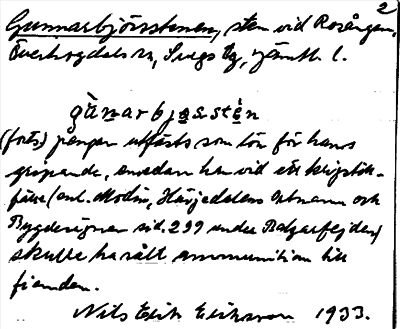 2
Gunnarbjörsstenen, sten vid Rosången,
Överhogdals sn, Svegs tg, Jämtl. l.
gànarbjɷsstén
(forts) pengar utfästs som lön för hans
gripande, emedan han vid ett krigstill-
fälle (enl. Modin, Härjedalens Ortnamn och
Bygdesägner sid. 299 under Balgarfejden)
skulle ha sålt ammunition till
fienden.
Nils Erik Eriksson 1933.